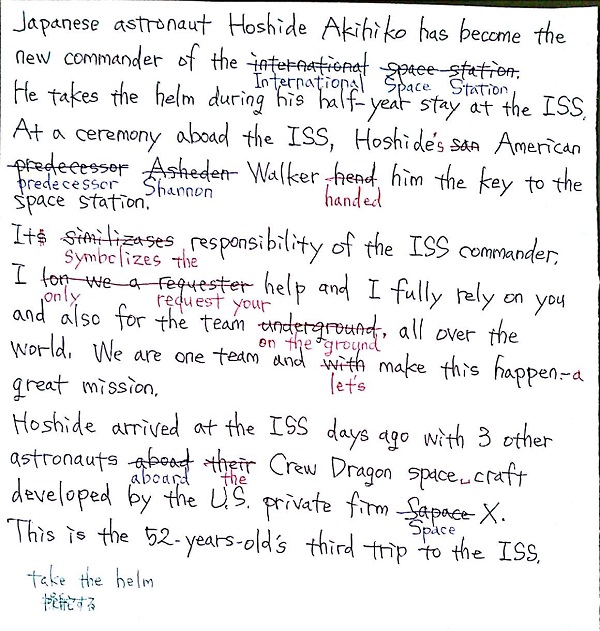 Japanese astronaut Hoshide Akihiko has become the
new commander of the international space station.
International Space Station
He takes the helm during his half-year stay at the ISS.
At a ceremony aboad the ISS, Hoshide's san American
predecessor Asheden Walker hend him the key to the
predecessor Shannon handed
space station.
Its similizases responsibility of the ISS commander.
symbolizes the
I ton we a requester help and I fully rely on you
only request your
and also for the team underground, all over the
on the ground
world. We are one team and with make this happen-a
let's
great mission.
Hoshide arrived at the ISS days ago with 3 other
astronauts aboad their Crew Dragon space craft
aboard the
developed by the U.S. private firm Sapace X.
Space
This is the 52-years-old's third trip to the ISS.
take the helm